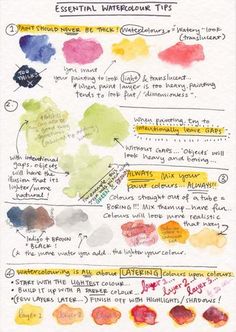 ESSENTIAL WATERCOLOUR TIPS
① PAINT SHOULD NEVER BE THICK! Watercolours = "Watery-look"
(translucent)
TOO
THICK!
you want
your painting to look light & translucent...
* When paint layer is too heavy, painting
tends to look flat / dimensionless.
②
When painting, try to
intentionally leave GAPS
WITHOUT GAPS... 'objects' will
look heavy and boring...
with intentional
gaps, objects
will have
the illusion
that its
lighter/more
natural!
③
ALWAYS Mix your
paint colours... ALWAYS!!
Colours straight out of a tube =
BORING!!! Mix them up... have fun.
Colours will look more realistic that
way!
Indigo + BROWN
= BLACK!
* the more water you add.. the lighter your colour.
④ watercolouring is ALL about LAYERING colours upon colours.
* START WITH the LIGHTEST colour...
* BUILD IT UP with a DARKER colour...
* (FEW LAYERS LATER..) FINISH OFF WITH HIGHLIGHTS / SHADOWS!
layer 1
layer 2
layer 3